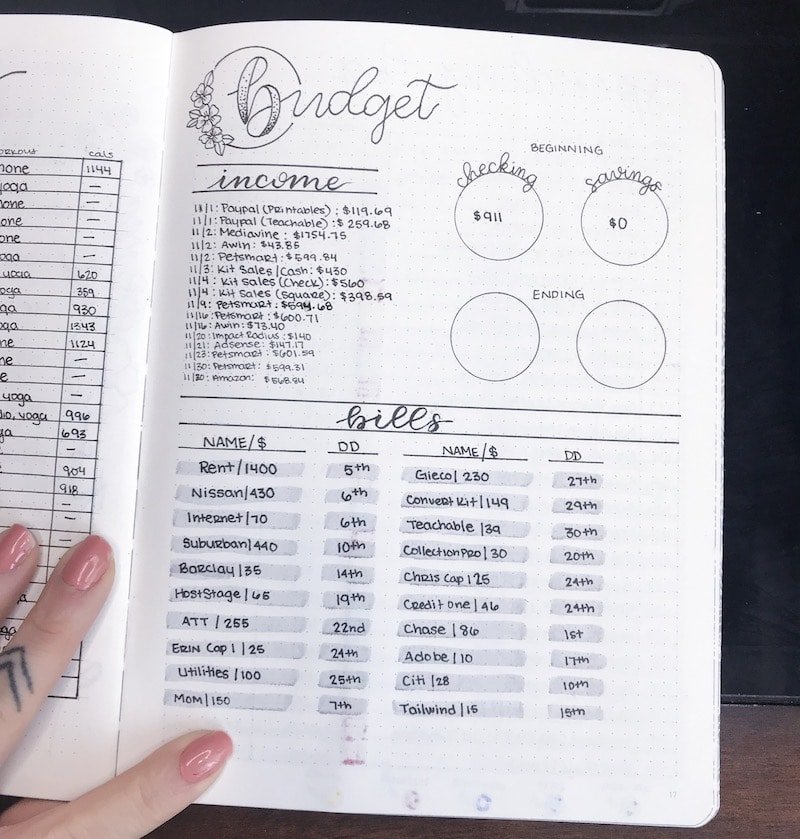 cals
none 1144
yoga —
none —
one —
one —
oga —
620
oga 359
ga 930
oga 1343
ne 1124
ne —
e —
yoga —
dio, yoga 996
ga 693
—
904
918
—
budget
income
11/1: Paypal (Printables) : $119.69
11/1: Paypal (Teachable) : $259.68
11/2: Mediavine : $1754.75
11/2: Awin: $43.85
11/2: Petsmart : $599.84
11/3: Kit Sales/Cash: $430
11/4: Kit Sales (Check): $560
11/4: Kit Sales (Square): $398.59
11/9: Petsmart: $594.68
11/16: Petsmart: $600.71
11/16: Awin: $73.40
11/20: Impact Radius : $140
11/21: Adsense: $147.17
11/23: Petsmart: $601.59
11/30: Petsmart: $599.31
11/30: Amazon: $568.84
BEGINNING
checking savings
$911 $0
ENDING
bills
NAME/$ DD
Rent/1400 5th
Nissan/430 6th
Internet/70 6th
Suburban/440 10th
Barclay/35 14th
HostStage/65 19th
ATT / 255 22nd
ERIN Cap 1 / 25 24th
Utilities /100 25th
MOM/150 7th
NAME/$ DD
Gieco/ 230 27th
Convert Kit/149 29th
Teachable /39 30th
CollectionPro/ 30 20th
Chris Cap 1 25 24th
Credit One /46 24th
Chase / 86 1st
Adobe/10 17th
Citi /28 10th
Tailwind/15 15th
17